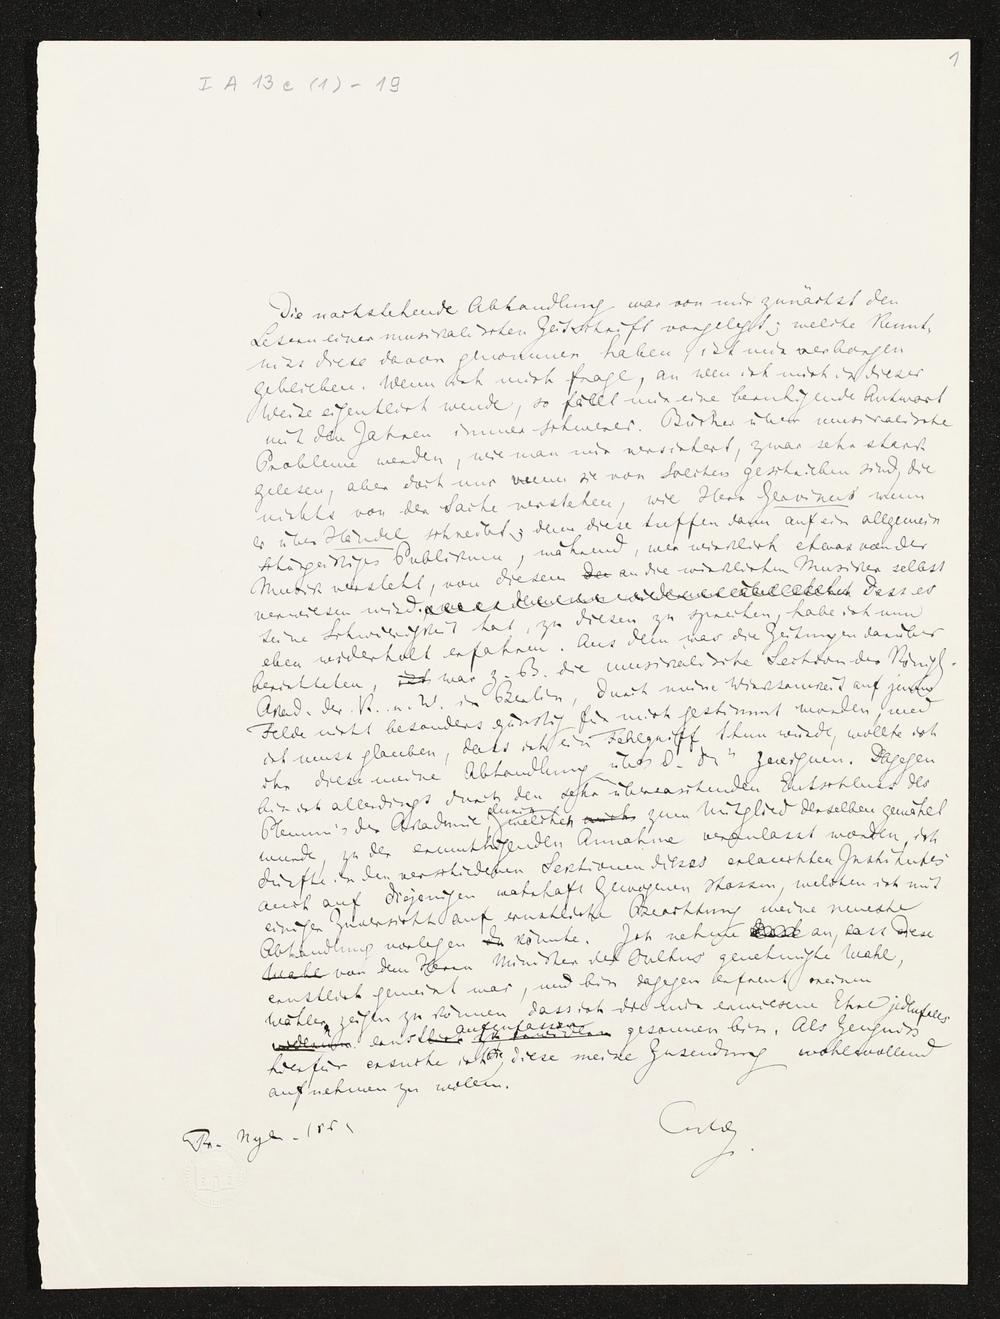 I A 13 c (1) - 19
1
Die nachstehende Abhandlung war von mir zunächst den
Lesern einer musikalischen Zeitschrift vorgelegt; welche Kennt-
niss diese davon genommen haben, ist mir verborgen
geblieben. Wenn ich mich frage, an wen ich mich in dieser
Weise eigentlich wende, so fällt mir eine beruhigende Antwort
mit den Jahren immer schwerer. Bücher über musikalische
Probleme werden, wie man mir versichert, zwar sehr stark
gelesen, aber doch nur wenn sie von Solchen geschrieben sind, die
nichts von der Sache verstehen, wie Herr Gervinus wenn
er über Händel schreibt; denn diese treffen dann auf ein allgemein
Publikum, während, wer wirklich etwas von der
Musik versteht, von diesem an die wirklichen Musiker selbst
verwiesen wird. Dass es
seine Schwierigkeit hat, zu diesen zu sprechen, habe ich nun
eben wiederholt erfahren. Aus dem was die Zeitungen darüber
berichteten, ist war z. B. die musikalische Section der Königl.
Akad. der K. u. W. in Berlin, durch meine Wirksamkeit auf jenem
Felde nicht besonders günstig für mich gestimmt worden, und
ich muss glauben, dass ich ein Fehlgriff thun würde, wollte ich
ihr diese meine Abhandlung über D. zueignen. Dagegen
bin ich allerdings durch den sehr überraschenden Entschluss des
Plenum's der Akademie durch welchen zum Mitglied derselben gewählt
wurde, zu der ermuthigenden Annahme veranlasst worden, ich
dürfte in den verschiedenen Sektionen dieses erlauchten Institutes
auch auf diejenigen wahrhaft Gewogenen stossen, welchen ich mit
einiger Zuversicht auf ernstliche Beachtung meine neueste
Abhandlung vorlegen könnte. Ich nehme an, dass diese
Wahl von dem Herrn Minister des Cultus genehmigte Wahl,
ernstlich gemeint war, und bin dagegen erfreut meinen
Wählern zeigen zu können dass ich die mir erwiesene Ehre jedenfalls
ernst aufzufassen gesonnen bin. Als Zeugniss
hierfür ersuche ich Sie, diese meine Zusendung wohlwollend
aufnehmen zu wollen.